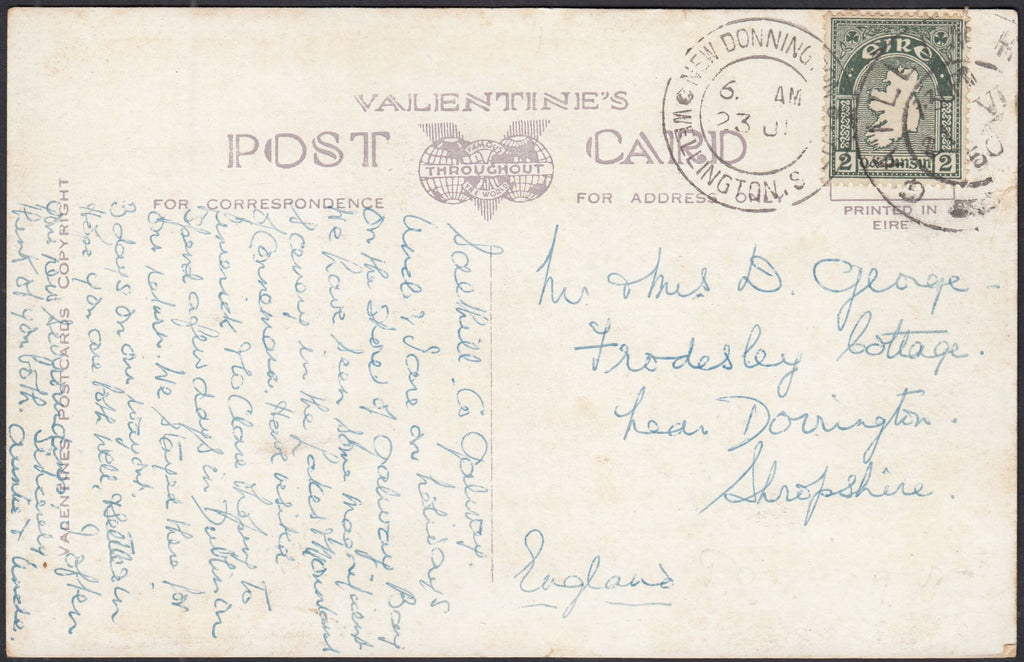 VALENTINE'S
POST CARD
FAMOUS
THROUGHOUT
THE WORLD
FOR CORRESPONDENCE
FOR ADDRESS ONLY
PRINTED IN
EIRE
VALENTINES POSTCARDS COPYRIGHT
NEW DONNING
WELLINGTON, S
6. AM
23 J
éIRe
2 dá pinsin 2
Salthill. Co Galway.
Uncle & I are on holidays
on the Shore of Galway Bay
We have seen some magnificent
Scenery in the Lakes & Mountains
of Connemara. Have visited
Limerick & Co Clare hoping to
Spend a few days in Dublin on
our return. We stayed there for
3 days on our way out.
Hope you are both well, & settled in
the new I often
think of you both. Auntie & Uncle.
Sincerely
Mr & Mrs D. George
Frodesley Cottage.
Near Dorrington.
Shropshire.
England